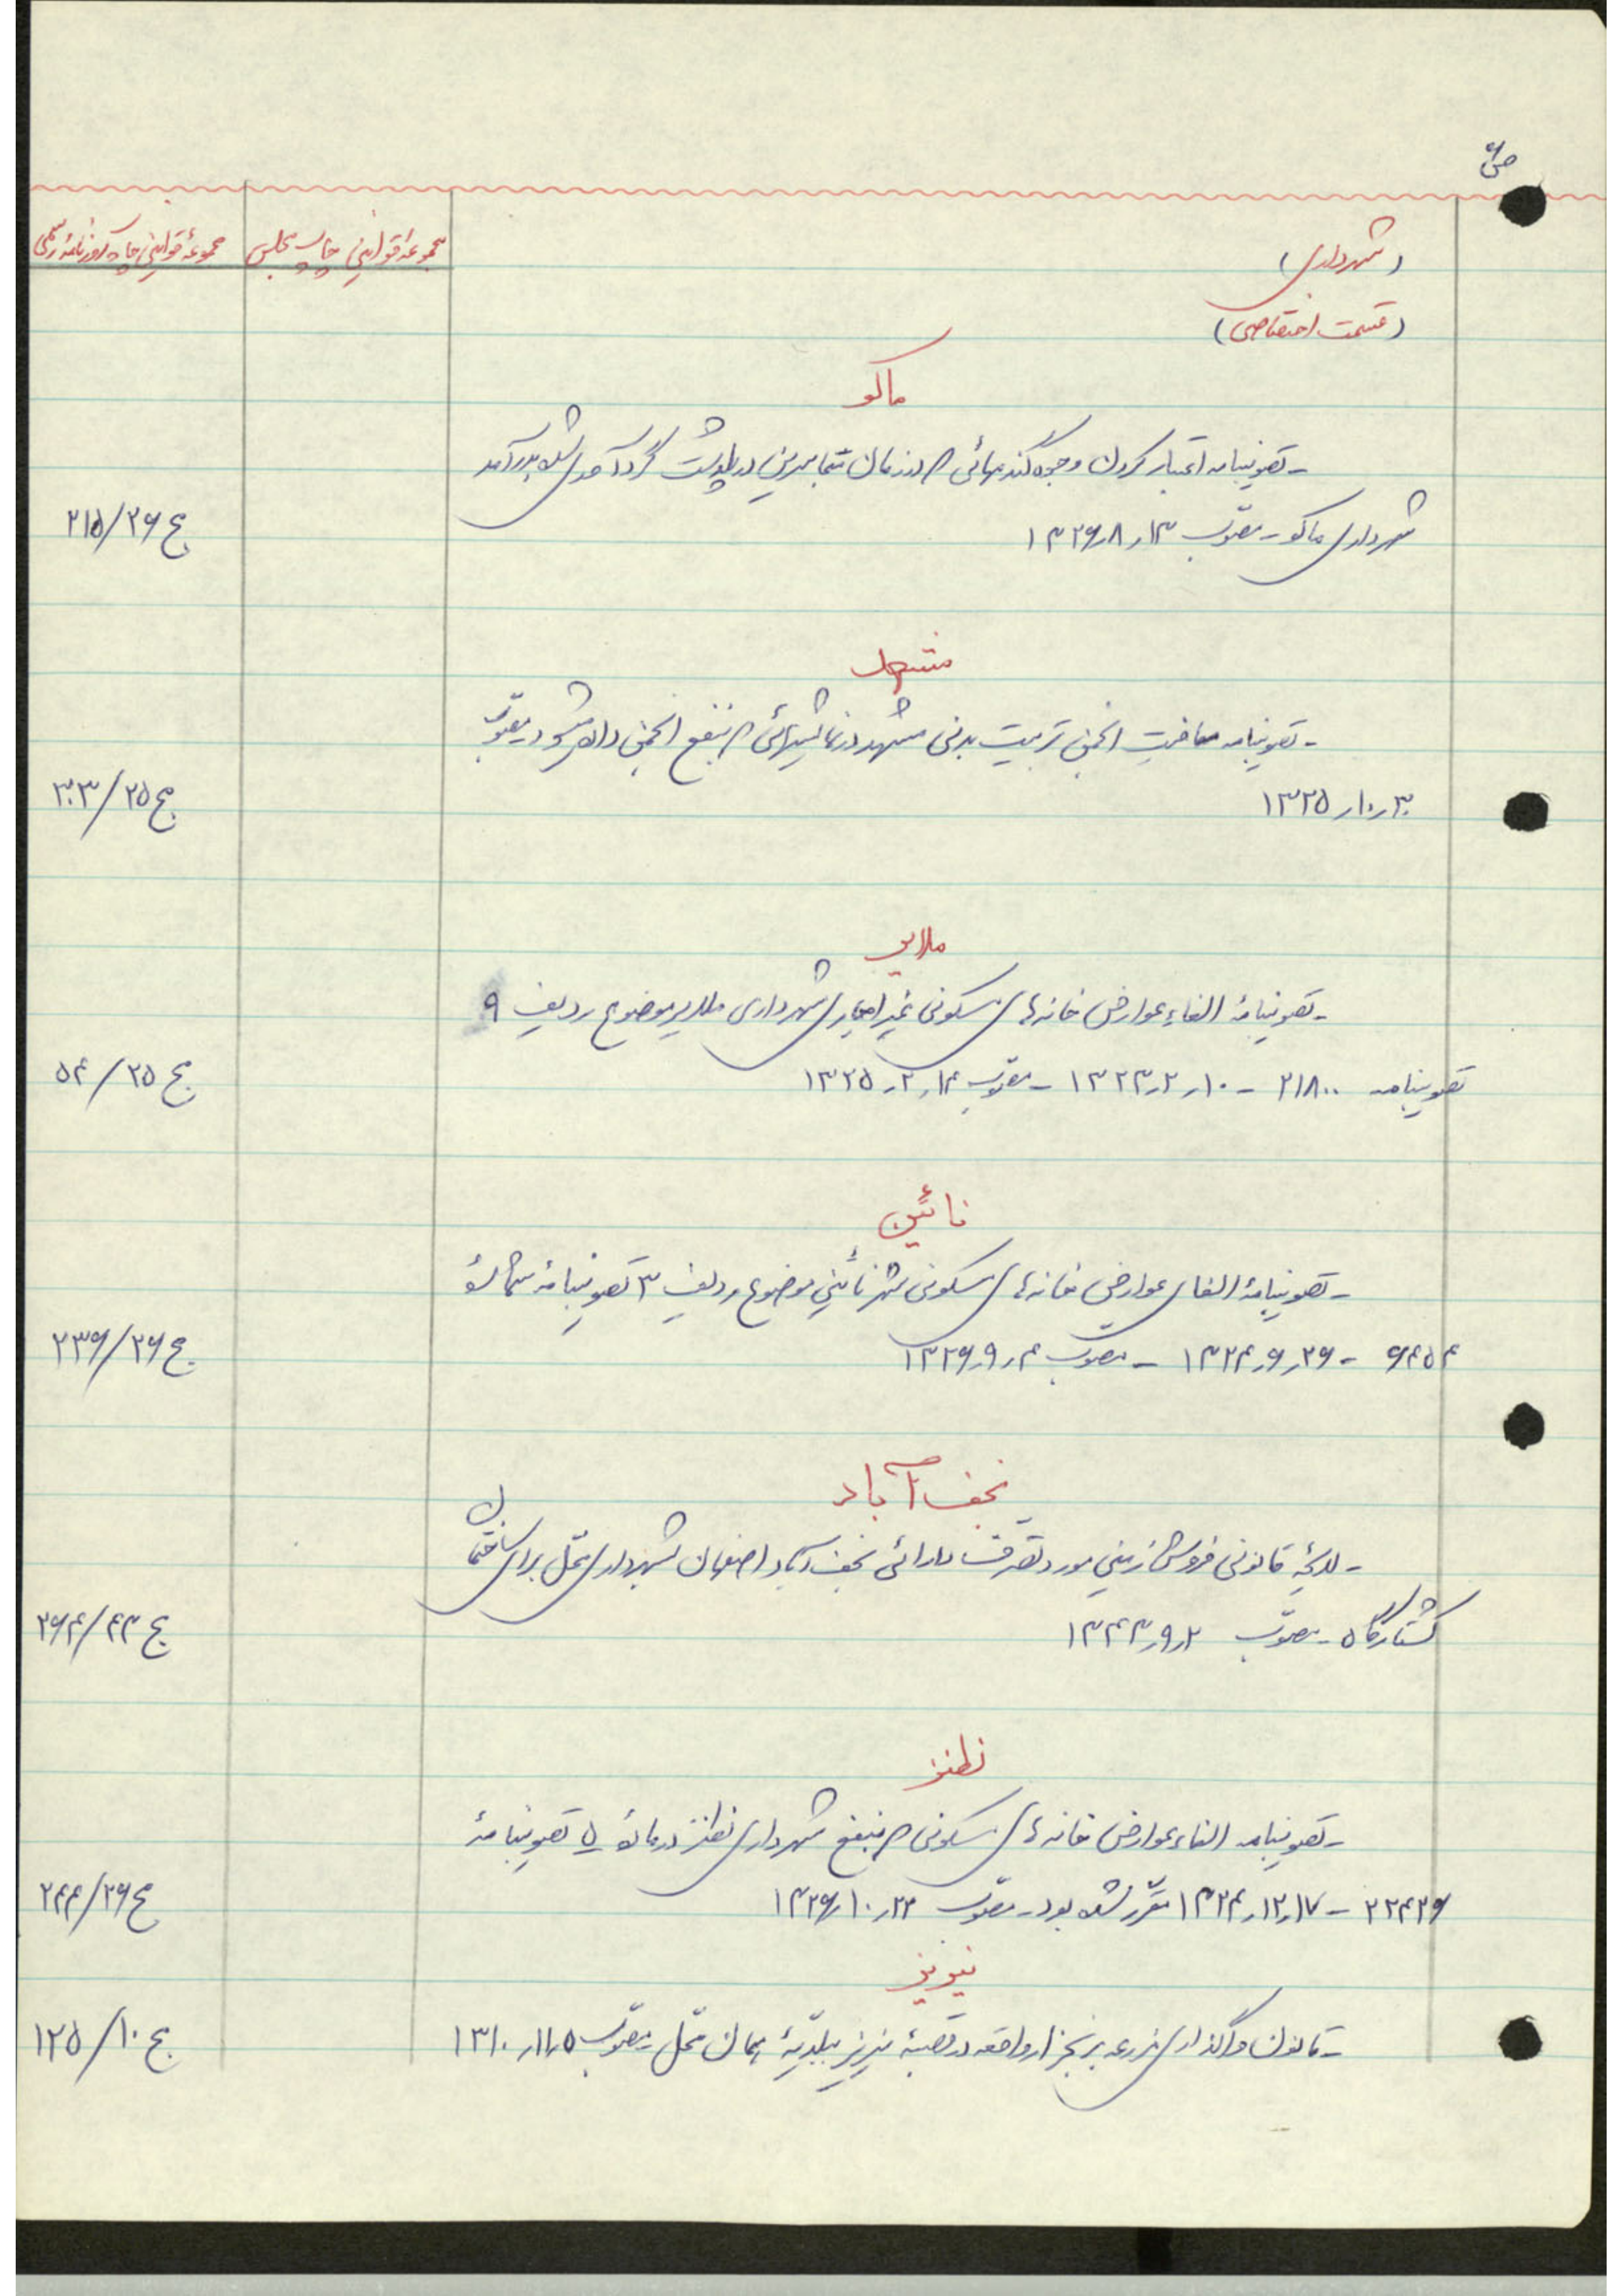 (شهرداری)
(قسمت اختصاصی)
مجموعهٔ قوانین چاپ مجلس
مجموعهٔ قوانین چاپ روزنامه رسمی
ماکو
- تصویبنامه اعتبار کردن وجوه گندمهائی که در زمان متجاسرین در پلدشت گردآوری شده بدرآمد
شهرداری ماکو - مصوب ۱۳ر۸ر۱۳۲۶
ج ۲۶/۲۱۵
مشهد
- تصویبنامه معافیت انجمن تربیت بدنی مشهد در نمایشهائی که بنفع انجمن داده میشود - مصوّب
۳۰ر۱۰ر۱۳۲۵
ج ۲۵/۳۰۳
ملایر
- تصویبنامهٔ الغاء عوارض خانه‌های مسکونی غیر اجاری شهرداری ملایر موضوع ردیف ۹
تصویبنامه ۲۱۸۰۰ - ۱۰ر۲ر۱۳۲۳ - مصوّب ۱۴ر۲ر۱۳۲۵
ج ۲۵/۵۴
نائین
- تصویبنامهٔ الغای عوارض خانه‌های مسکونی شهر نائین موضوع ردیف ۳ تصویبنامهٔ شمارهٔ
۶۴۵۴ - ۲۶ر۶ر۱۳۲۴ - مصوّب ۴ر۹ر۱۳۲۶
ج ۲۶/۲۳۶
نجف آباد
- لایحهٔ قانونی فروش زمین مورد تصرف دارائی نجف‌آباد اصفهان بشهرداری محل برای ساختمان
کشتارگاه - مصوّب ۲ر۹ر۱۳۴۳
ج ۴۳/۳۶۴
نطنز
- تصویبنامه الغاء عوارض خانه‌های مسکونی که بنفع شهرداری نطنز در مادهٔ ۵ تصویبنامهٔ
۲۲۴۲۶ - ۱۷ر۱۲ر۱۳۲۴ مقرّر شده بود - مصوّب ۲۳ر۱۰ر۱۳۲۶
ج ۲۶/۲۴۴
نیریز
- قانون واگذاری مزرعه برنجزار واقعه در قصبهٔ نیریز ببلدیّهٔ همان محل - مصوّب ۵ر۱۱ر۱۳۱۰
ج ۱۰/۱۲۵